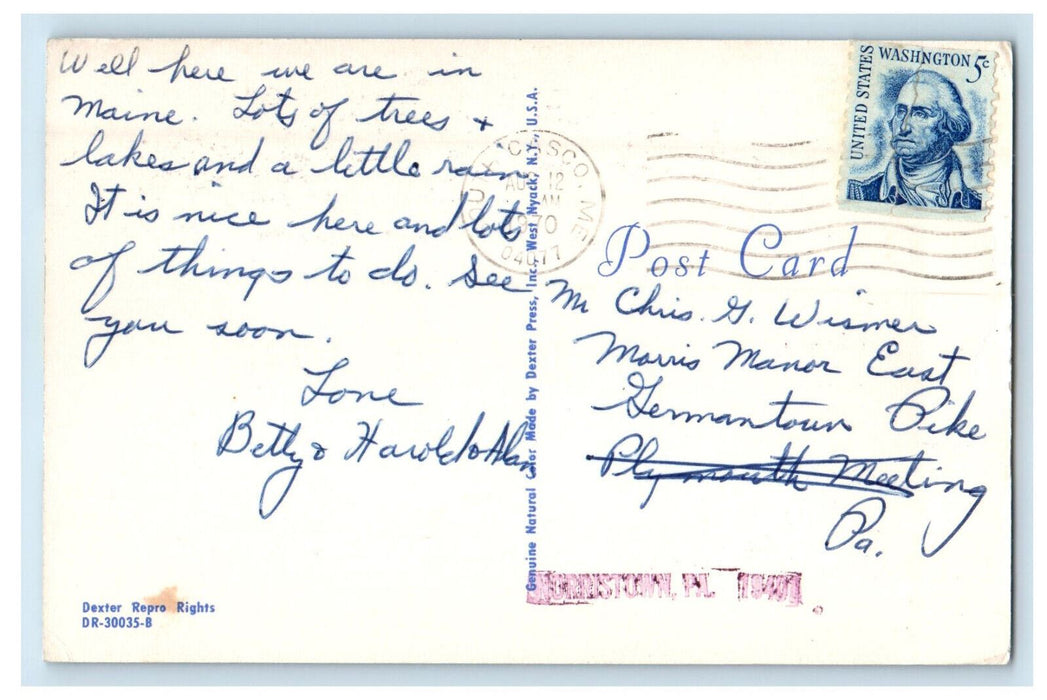 Well here we are in
Maine. Lots of trees +
lakes and a little rain
It is nice here and lots
of things to do. See
you soon.
Love
Betty & Harold & Alan
Dexter Repro Rights
DR-30035-B
Genuine Natural Color Made by Dexter Press, Inc., West Nyack, N.Y., U.S.A.
CASCO, ME
AUG 12
AM
1970
04077
UNITED STATES
WASHINGTON 5c
Post Card
Mr Chris. G. Wismer
Morris Manor East
Germantown Pike
Plymouth Meeting
Pa.
NORRISTOWN, PA. 19401